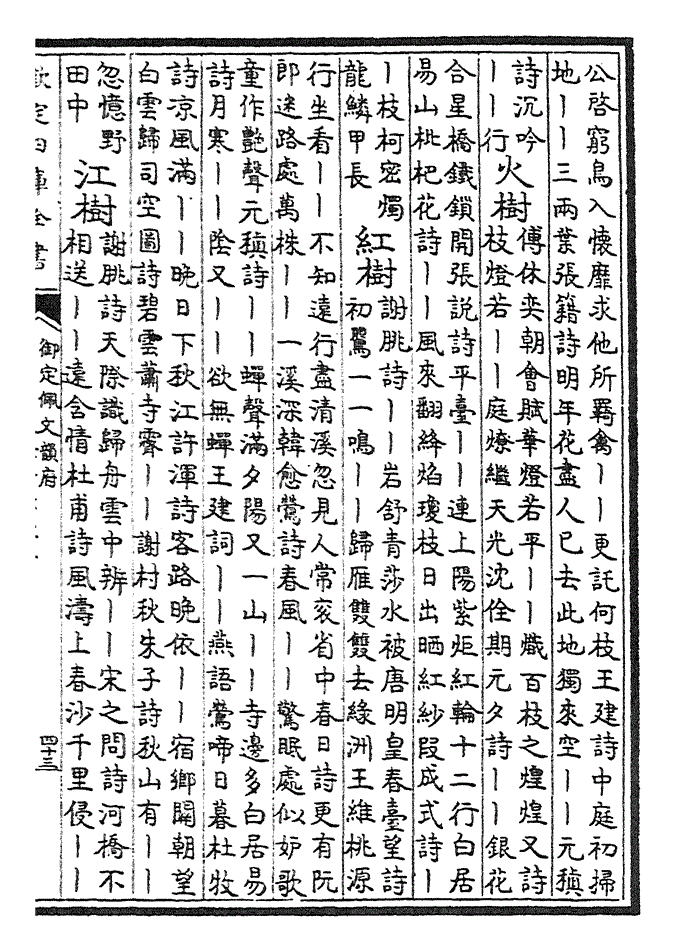 公啓窮鳥入懷靡求他所羇禽丨丨更託何枝王建詩中庭初掃
地丨丨三兩葉張籍詩明年花盡人已去此地獨來空丨丨元稹
詩沉吟
丨丨行
火樹
傅休奕朝會賦華燈若乎丨丨熾百枝之煌煌又詩
枝燈若丨丨庭燎繼天光沈佺期元夕詩丨丨銀花
合星橋鐵鎖開張説詩平臺丨丨連上陽紫炬紅輪十二行白居
易山枇杷花詩丨丨風來翻絳焰瓊枝日出晒紅紗段成式詩丨
丨枝柯密燭
龍鱗甲長
紅樹
謝朓詩丨丨岩舒青莎水被唐明皇春臺望詩
初鸎一一鳴丨丨歸雁雙雙去綠洲王維桃源
行坐看丨丨不知遠行盡清溪忽見人常衮省中春日詩更有阮
郎迷路處萬株丨丨一溪深韓愈鶯詩春風丨丨驚眠處似妒歌
童作艷聲元稹詩丨丨蟬聲滿夕陽又一山丨丨寺邊多白居易
詩月寒丨丨陰又丨丨欲無蟬王建詞丨丨燕語鶯啼日暮杜牧
詩凉風滿丨丨晚日下秋江許渾詩客路晚依丨丨宿鄉關朝望
白雲歸司空圖詩碧雲蕭寺霽丨丨謝村秋朱子詩秋山有丨丨
忽憶野
田中
江樹
謝朓詩天際識歸舟雲中辨丨丨宋之問詩河橋不
相送丨丨遠含情杜甫詩風濤上春沙千里侵丨丨
欽定四庫全書
御定佩文韻府
四十三